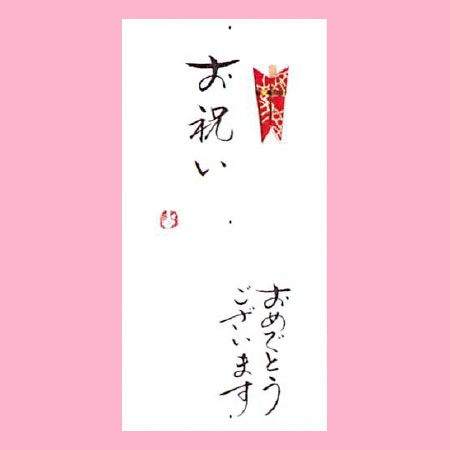 お祝い
おめでとう
ございます